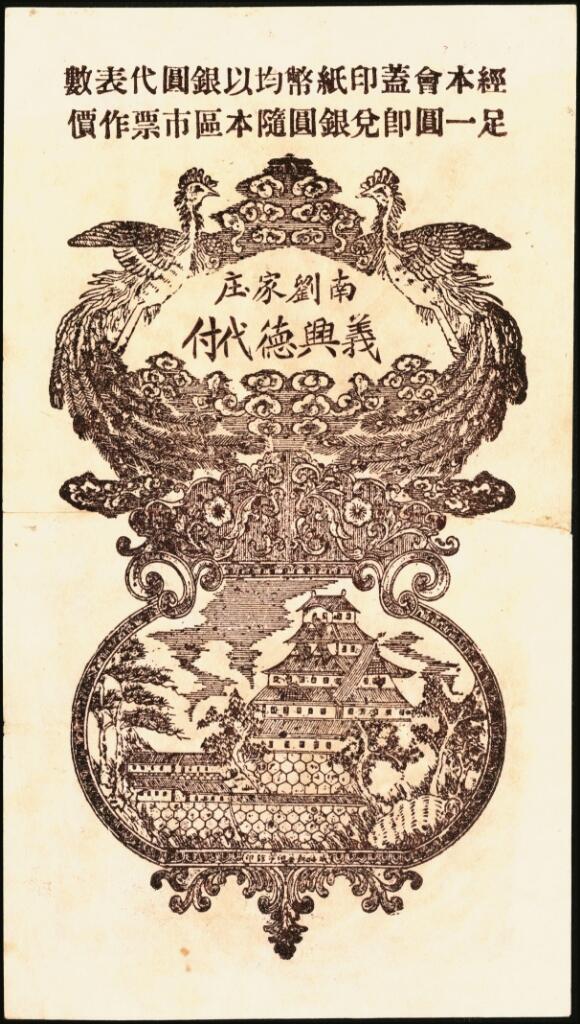 經本會蓋印紙幣均以銀圓代表數
足一圓即兌銀圓隨本區市票作價
南劉家庄
義興德代付